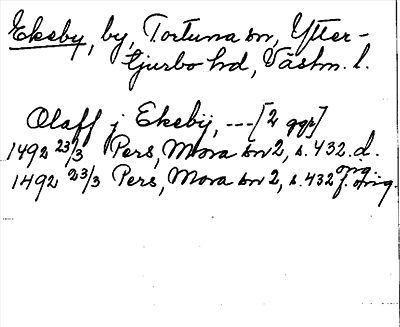 Ekeby, by, Tortuna sn, Ytter-
tjurbo hd, Västm. l.
Olaff j Ekebij, --- [2 ggr]
1492 23/3 Pers, Mora sn 2, s. 432. d. org.
1492 23/3 Pers, Mora sn 2, s. 432 f. orig.